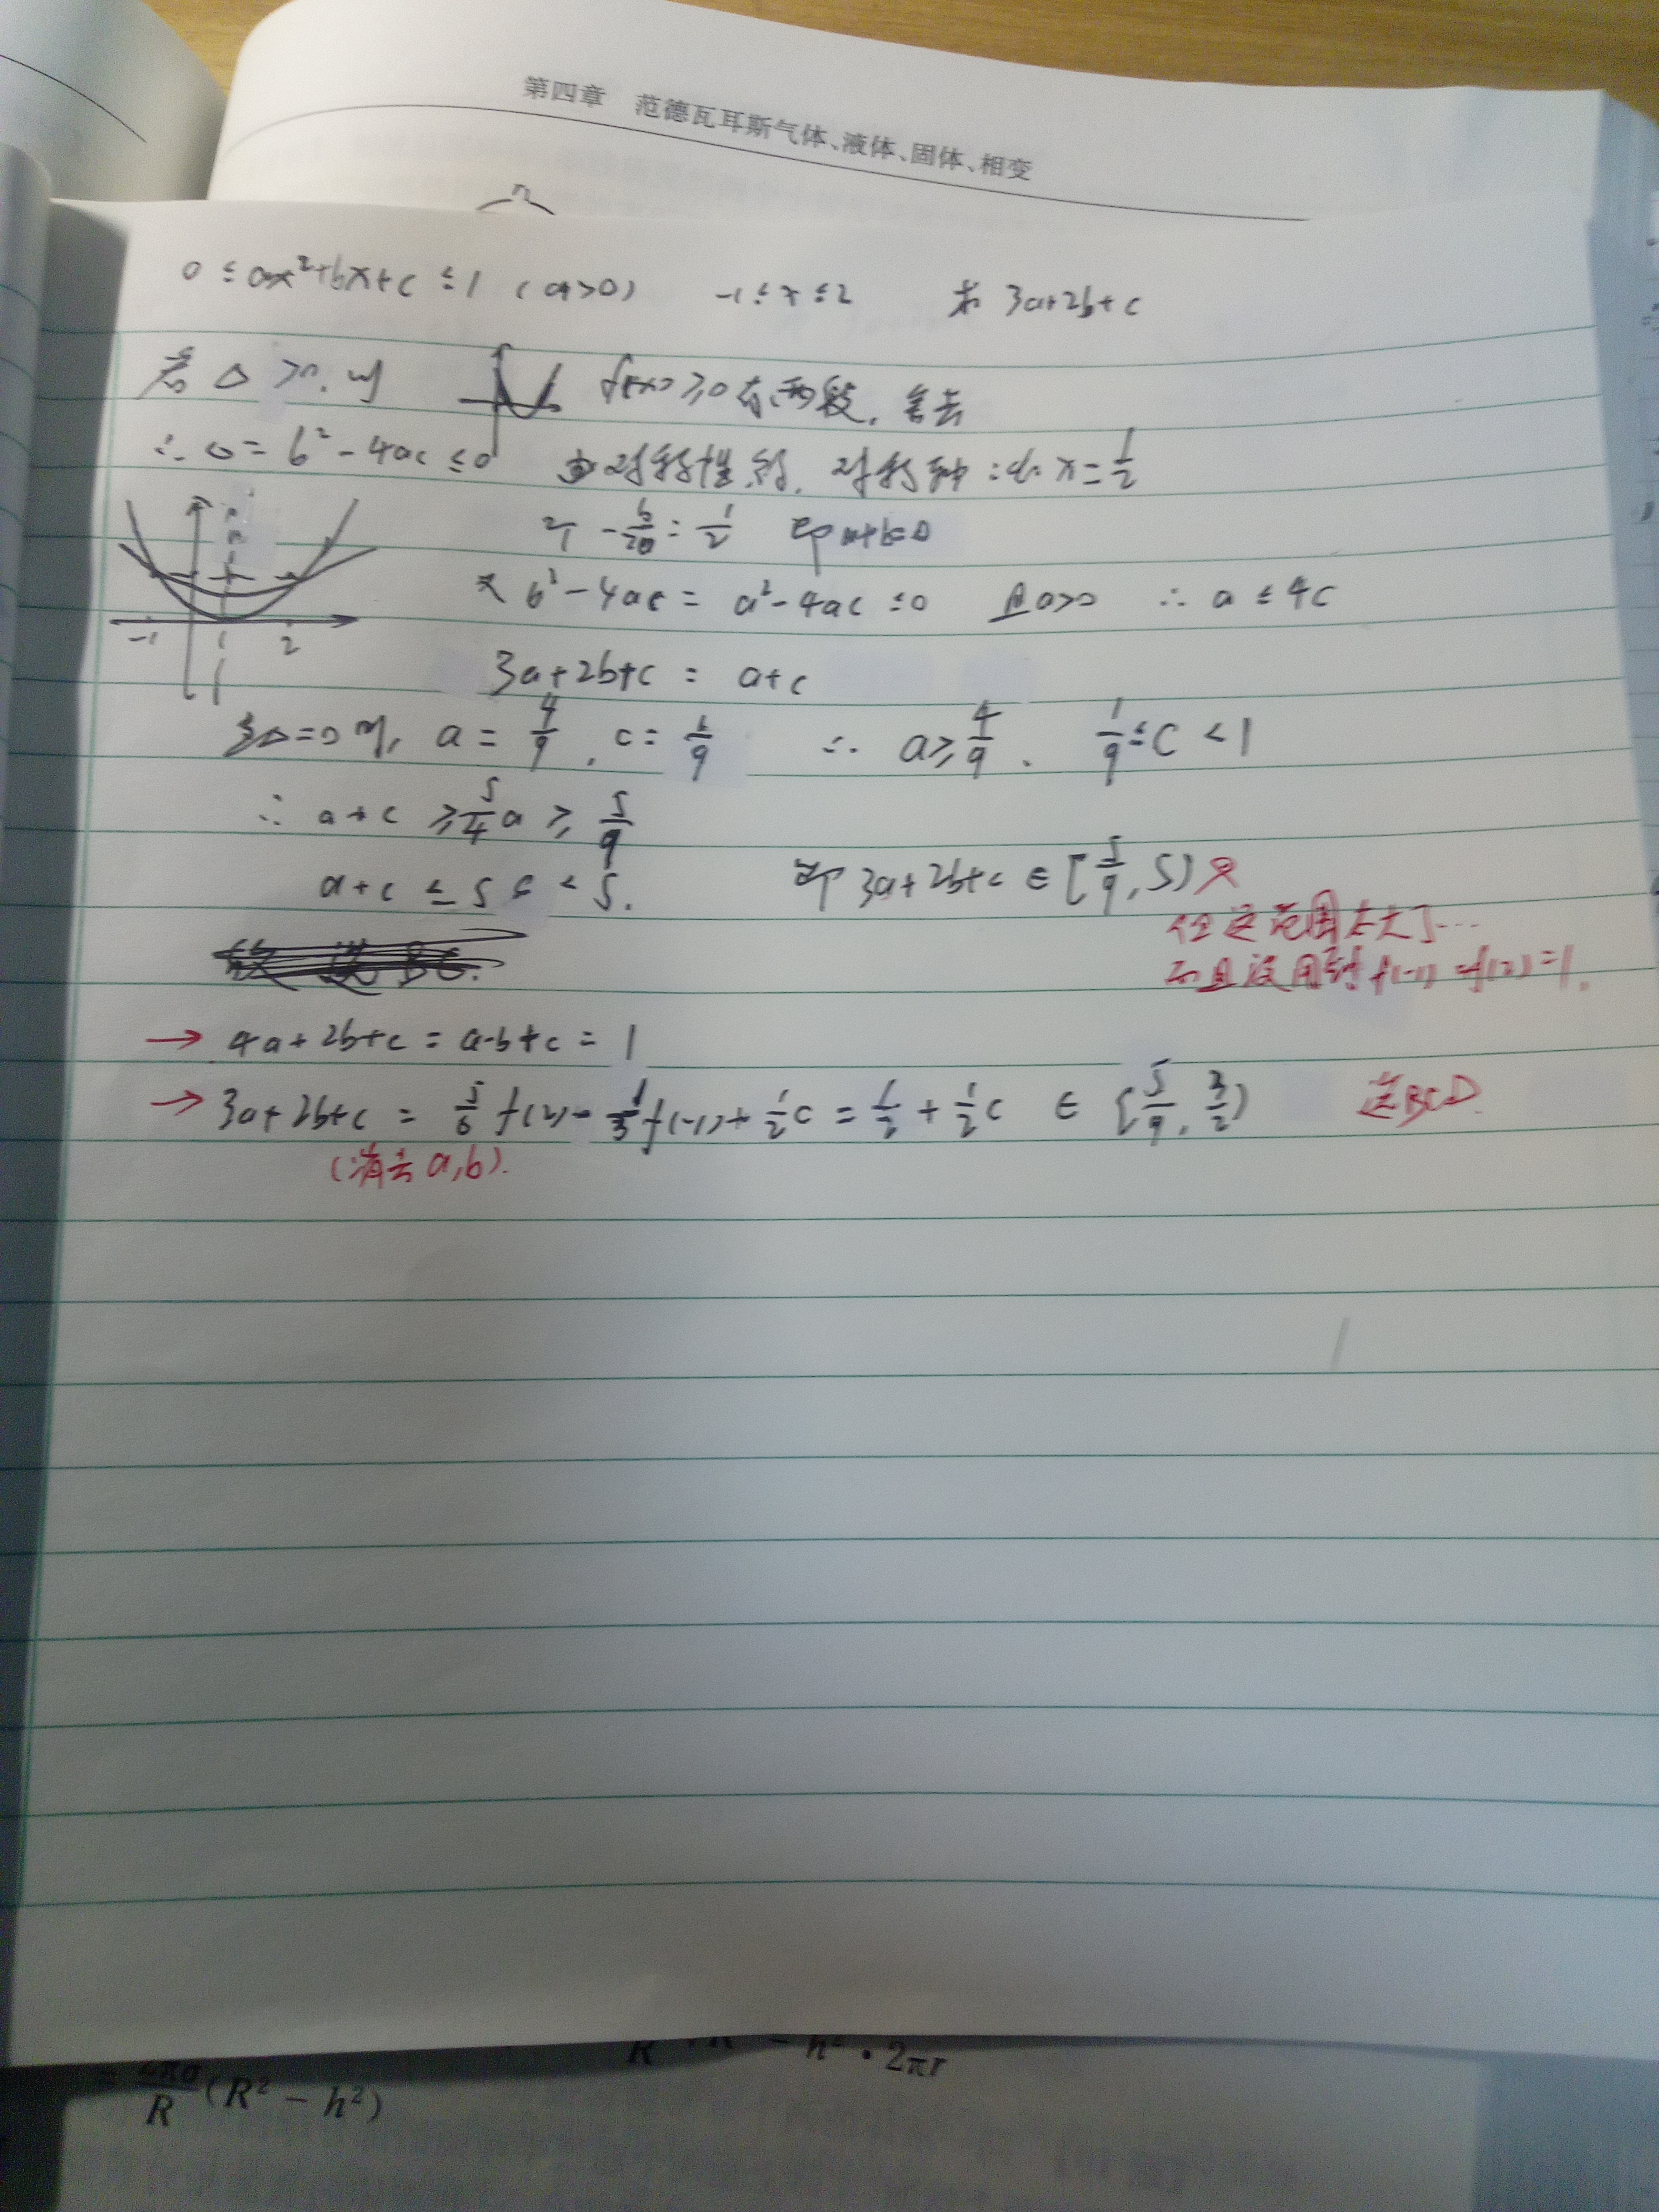 第四章 范德瓦耳斯气体、液体、固体、相变
0 ≤ ax²+bx+c ≤ 1 (a>0) -1 ≤ x ≤ 2 求 3a+2b+c
若 Δ >0. 则 f(x) ≥0 有两段. 舍去
∴ Δ = b² - 4ac ≤ 0 由对称性知. 对称轴: x = 1/2
-b/2a = 1/2 即 a+b=0
又 b² - 4ac = a² - 4ac ≤ 0 且 a>0 ∴ a ≤ 4c
-1 2
3a+2b+c = a+c
Δ=0 时, a = 4/9 , c = 1/9 ∴ a ≥ 4/9 . 1/9 ≤ c < 1
∴ a + c ≥ 5/4 a ≥ 5/9
a + c ≤ 5c < 5. 即 3a+2b+c ∈ [5/9, 5)
但这范围太大了...
而且没用到 f(-1) = f(2) = 1.
故 选 BC.
→ 4a+2b+c = a-b+c = 1
→ 3a+2b+c = 5/6 f(2) - 1/3 f(-1) + 1/2 c = 1/2 + 1/2 c ∈ [5/9, 3/2) 选BCD
(消去 a,b).
R - h² • 2πr
= R (R² − h²)